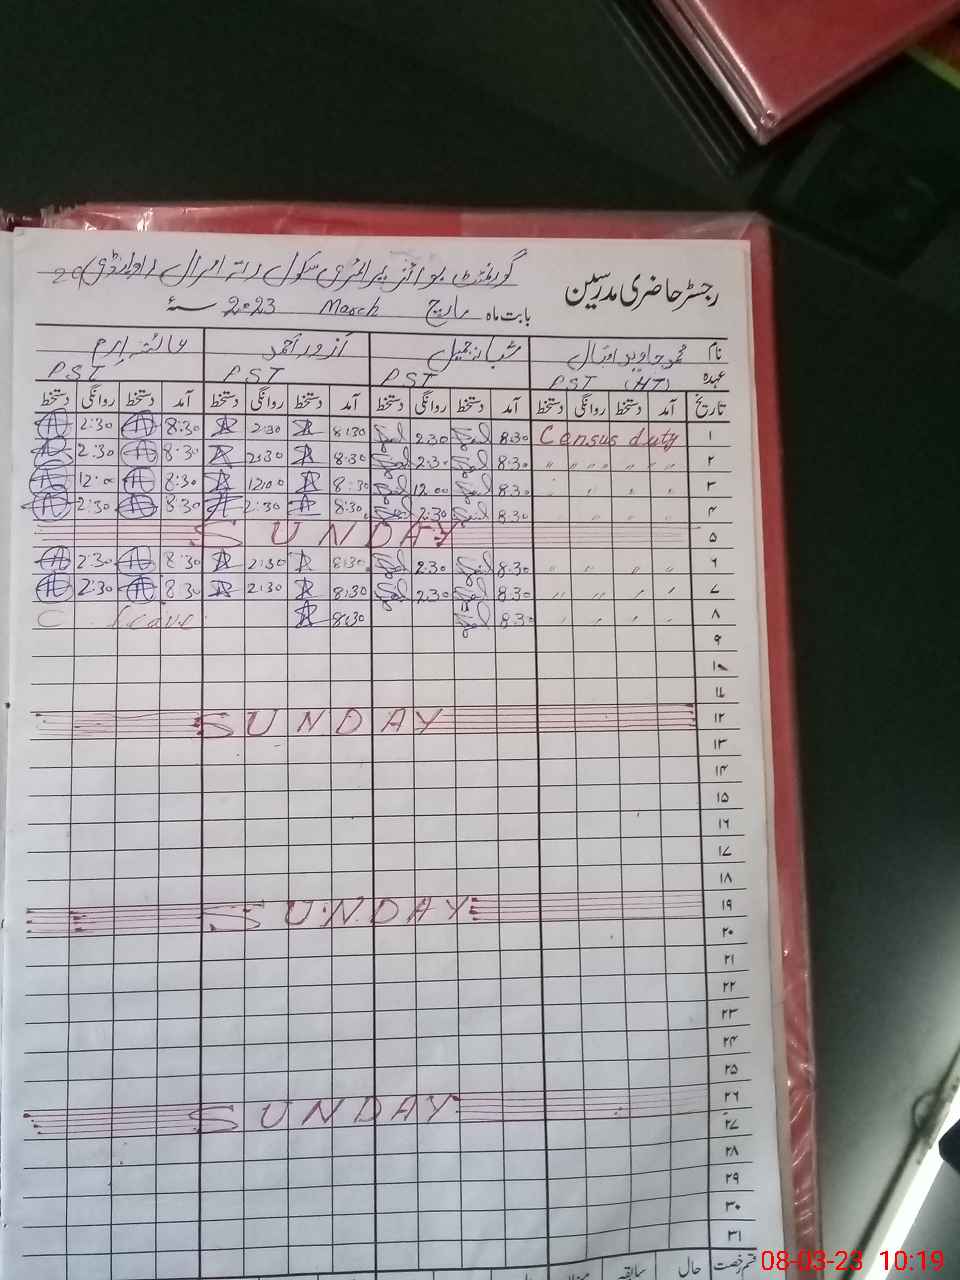 رجسٹر حاضری مدرسین
گورنمنٹ بوائز پرائمری سکول رتہ امرال راولپنڈی
بابت ماہ مارچ March 2023 سنۂ
نام محمد جاوید اقبال شبانہ جمیل آزور احمد عائشہ ارم
عہدہ PST (HT) PST PST PST
تاریخ آمد دستخط روانگی دستخط آمد دستخط روانگی دستخط آمد دستخط روانگی دستخط آمد دستخط روانگی دستخط
۱ Census duty 8:30 2:30 8:30 2:30 8:30 2:30
۲ " " " " " " 8:30 2:30 8:30 2:30 8:30 2:30
۳ " " " " 8:30 12:00 8:30 12:00 8:30 12:00
۴ " " " " 8:30 2:30 8:30 2:30 8:30 2:30
۵ SUNDAY
۶ " " " " 8:30 2:30 8:30 2:30 8:30 2:30
۷ " " " " 8:30 2:30 8:30 2:30 8:30 2:30
۸ " " " " 8:30 8:30 C. leave
۹
۱۰
۱۱
۱۲ SUNDAY
۱۳
۱۴
۱۵
۱۶
۱۷
۱۸
۱۹ SUNDAY
۲۰
۲۱
۲۲
۲۳
۲۴
۲۵
۲۶ SUNDAY
۲۷
۲۸
۲۹
۳۰
۳۱
قسم رخصت حال سابقہ
08-03-23 10:19